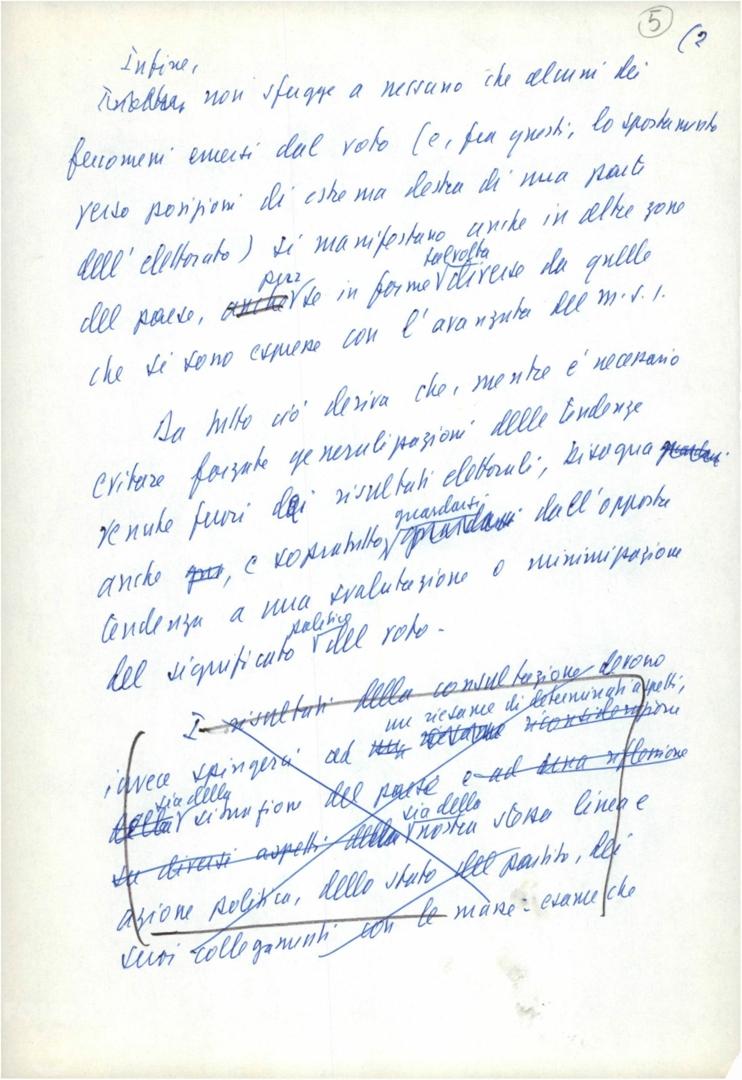 5 (2
Infine,
non sfugge a nessuno che alcuni dei
fenomeni emersi dal voto (e, fra questi, lo spostamento
verso posizioni di estrema destra di una parte
dell'elettorato) si manifestano anche in altre zone
pur talvolta
del paese, anche se in forme diverse da quelle
che si sono espresse con l'avanzata del M.S.I.
Da tutto ciò deriva che, mentre è necessario
evitare forzate generalizzazioni delle tendenze
venute fuori dai risultati elettorali, bisogna guardarsi
guardarsi
anche , e sopratutto, guardarsi dall'opposta
tendenza a una svalutazione o minimizzazione
politico
del significato del voto.
I risultati della consultazione devono
un riesame di determinati aspetti,
invece spingerci ad una riconsiderazione
sia della
della situazione del paese e ad una riflessione
sia della
su diversi aspetti della nostra stessa linea e
azione politica, dello stato del partito, dei
suoi collegamenti con le masse: esame che